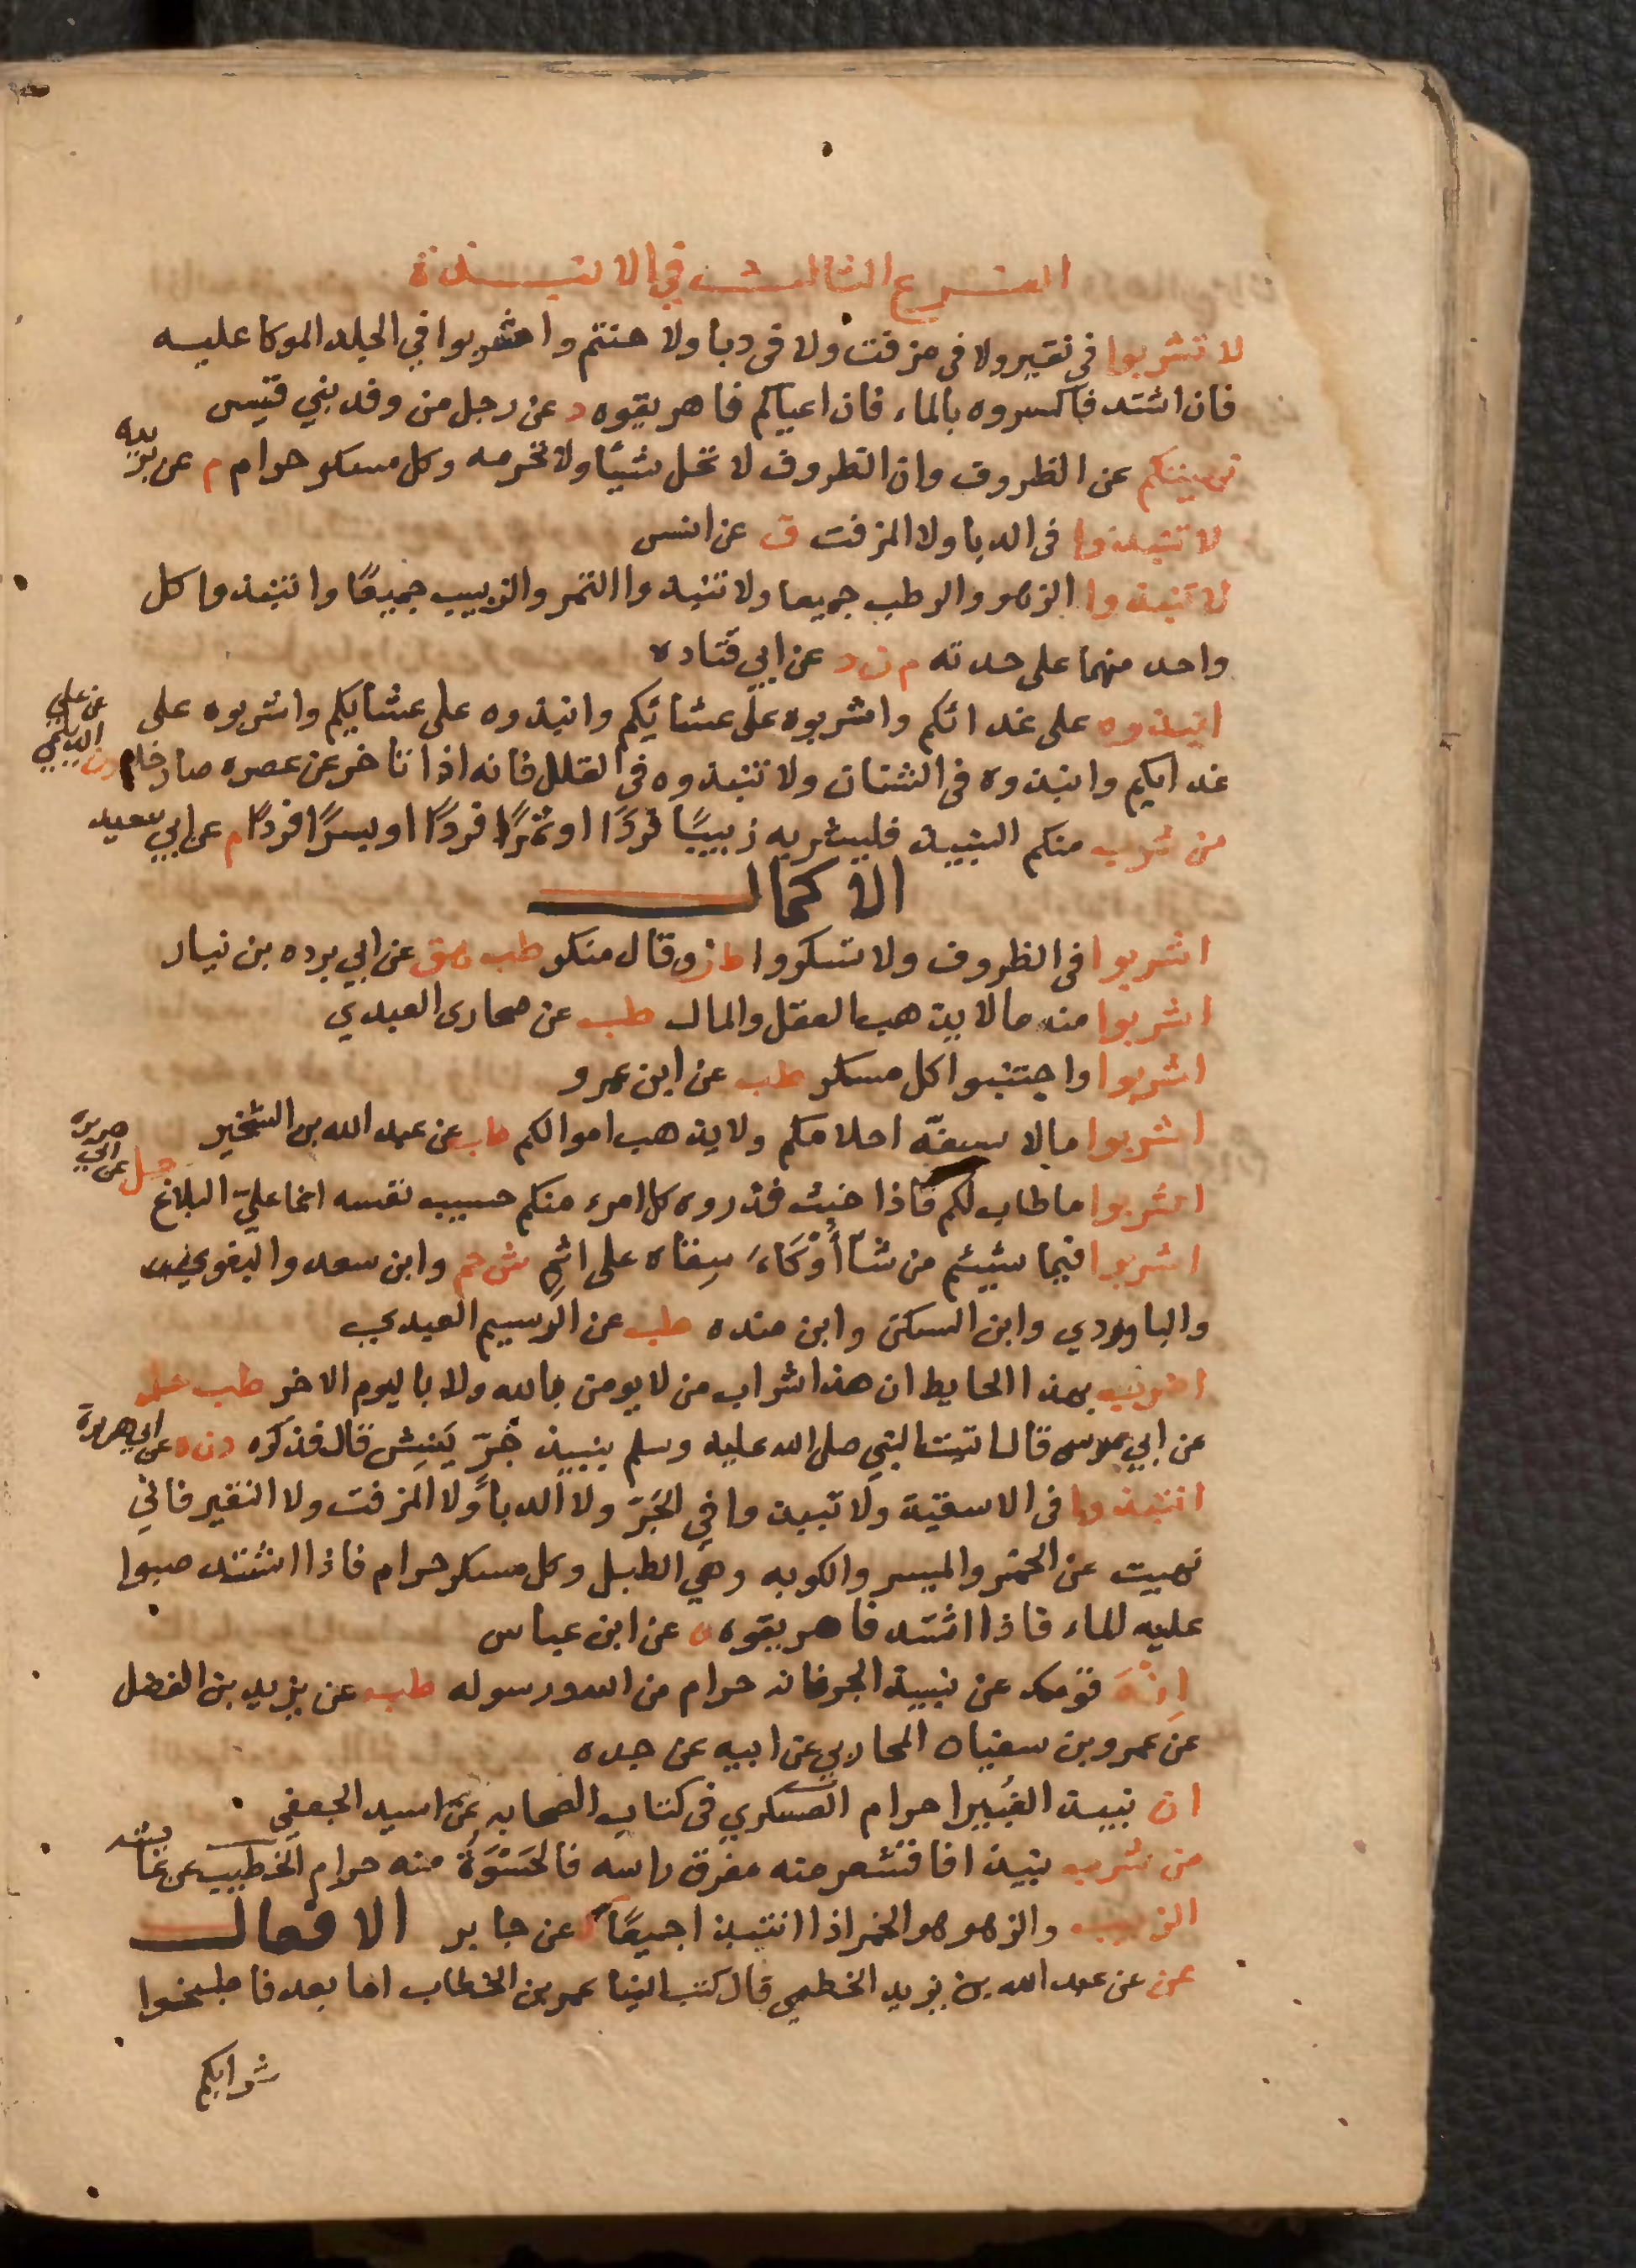 الفرع الثالث في الانبذة
لا تشربوا في نقير ولا في مزفت ولا في دبا ولا حنتم واشربوا في الجلد الموكا عليه
فان اشتد فاكسروه بالماء فان اعياكم فاهريقوه د عن رجل من وفد بني قيس
نهيتكم عن الظروف وان الظروف لا تحل شيئا ولا تحرمه وكل مسكر حرام م عن بريده
لا تنتبذوا في الدبا ولا المزفت ق عن انس
لا تنبذوا الزهو والرطب جميعا ولا تنبذوا التمر والزبيب جميعًا وانتبذوا كل
واحد منهما على حدته م ن د عن ابي قتاده
انبذوه على غدائكم واشربوه على عشائيكم وانبذوه على عشايكم واشربوه على
غدايكم وانبذوه في الشنان ولا تنبذوه في القلل فانه اذا تاخر عن عصره صار خلا د ن
عن الديلمي
من شرب منكم النبيذ فليشربه زبيبًا فردًا او تمرًا فردًا او بسرًا فردًا م عن ابي سعيد
الاكمال
اشربوا في الظروف ولا تسكروا ط ن وقال منكر طب هق عن ابي برده بن نيار
اشربوا منه ما لا يذهب العقل والمال طب عن صحارى العبدي
اشربوا واجتنبوا كل مسكر طب عن ابن عمرو
اشربوا ما لا يسفّه احلامكم ولا يذهب اموالكم طب عن عبد الله بن الشخير
اشربوا ما طاب لكم فاذا خبث فذروه كل امرء منكم حسيب نفسه انما عليّ البلاغ حل عن ابي هريره
اشربوا فيما شيئتم من شآ أَوْكَاءَ سِقاه على اثمٍ ش حم وابن سعد والبغوي
والباوردي وابن السكن وابن منده طب عن الرسيم العبدي
اضرب بهذا الحايط ان هذا شراب من لا يومن بالله ولا باليوم الاخر طب حل
عن ابي موسى قال اتيت النبي صلى الله عليه وسلم بنبيذ جَرّ يَنِش قال فذكره د ن ه عن ابي هريرة
انتبذوا في الاسقية ولا تنبذوا في الجَرّ ولا الدبآ ولا المزفت ولا النقير فاني
نهيت عن الخمر والميسر والكوبه وهي الطبل وكل مسكر حرام فاذا اشتد صبوا
عليه الماء فاذا اشتد فاهريقوه عن ابن عباس
اِنْهَ قومك عن نبيذ الجر فانه حرام من الله ورسوله طب عن يزيد بن الفضل
عن عمرو بن سفيان المحاربي عن ابيه عن جده
ان نبيذ الغُبيرا حرام العسكري في كتاب الصحابه عن اسيد الجعفي
من شرب نبيذا فاقشعر منه مفرق راسه فالحَسْوَةُ منه حرام الخطيب عن عايشه
الزبيب والزهو هو الخمر اذا انتبذا جميعًا ك عن جابر الافعال
عن عن عبد الله بن يزيد الخطمي قال كتب الينا عمر بن الخطاب اما بعد فاطبخوا
شرابكم